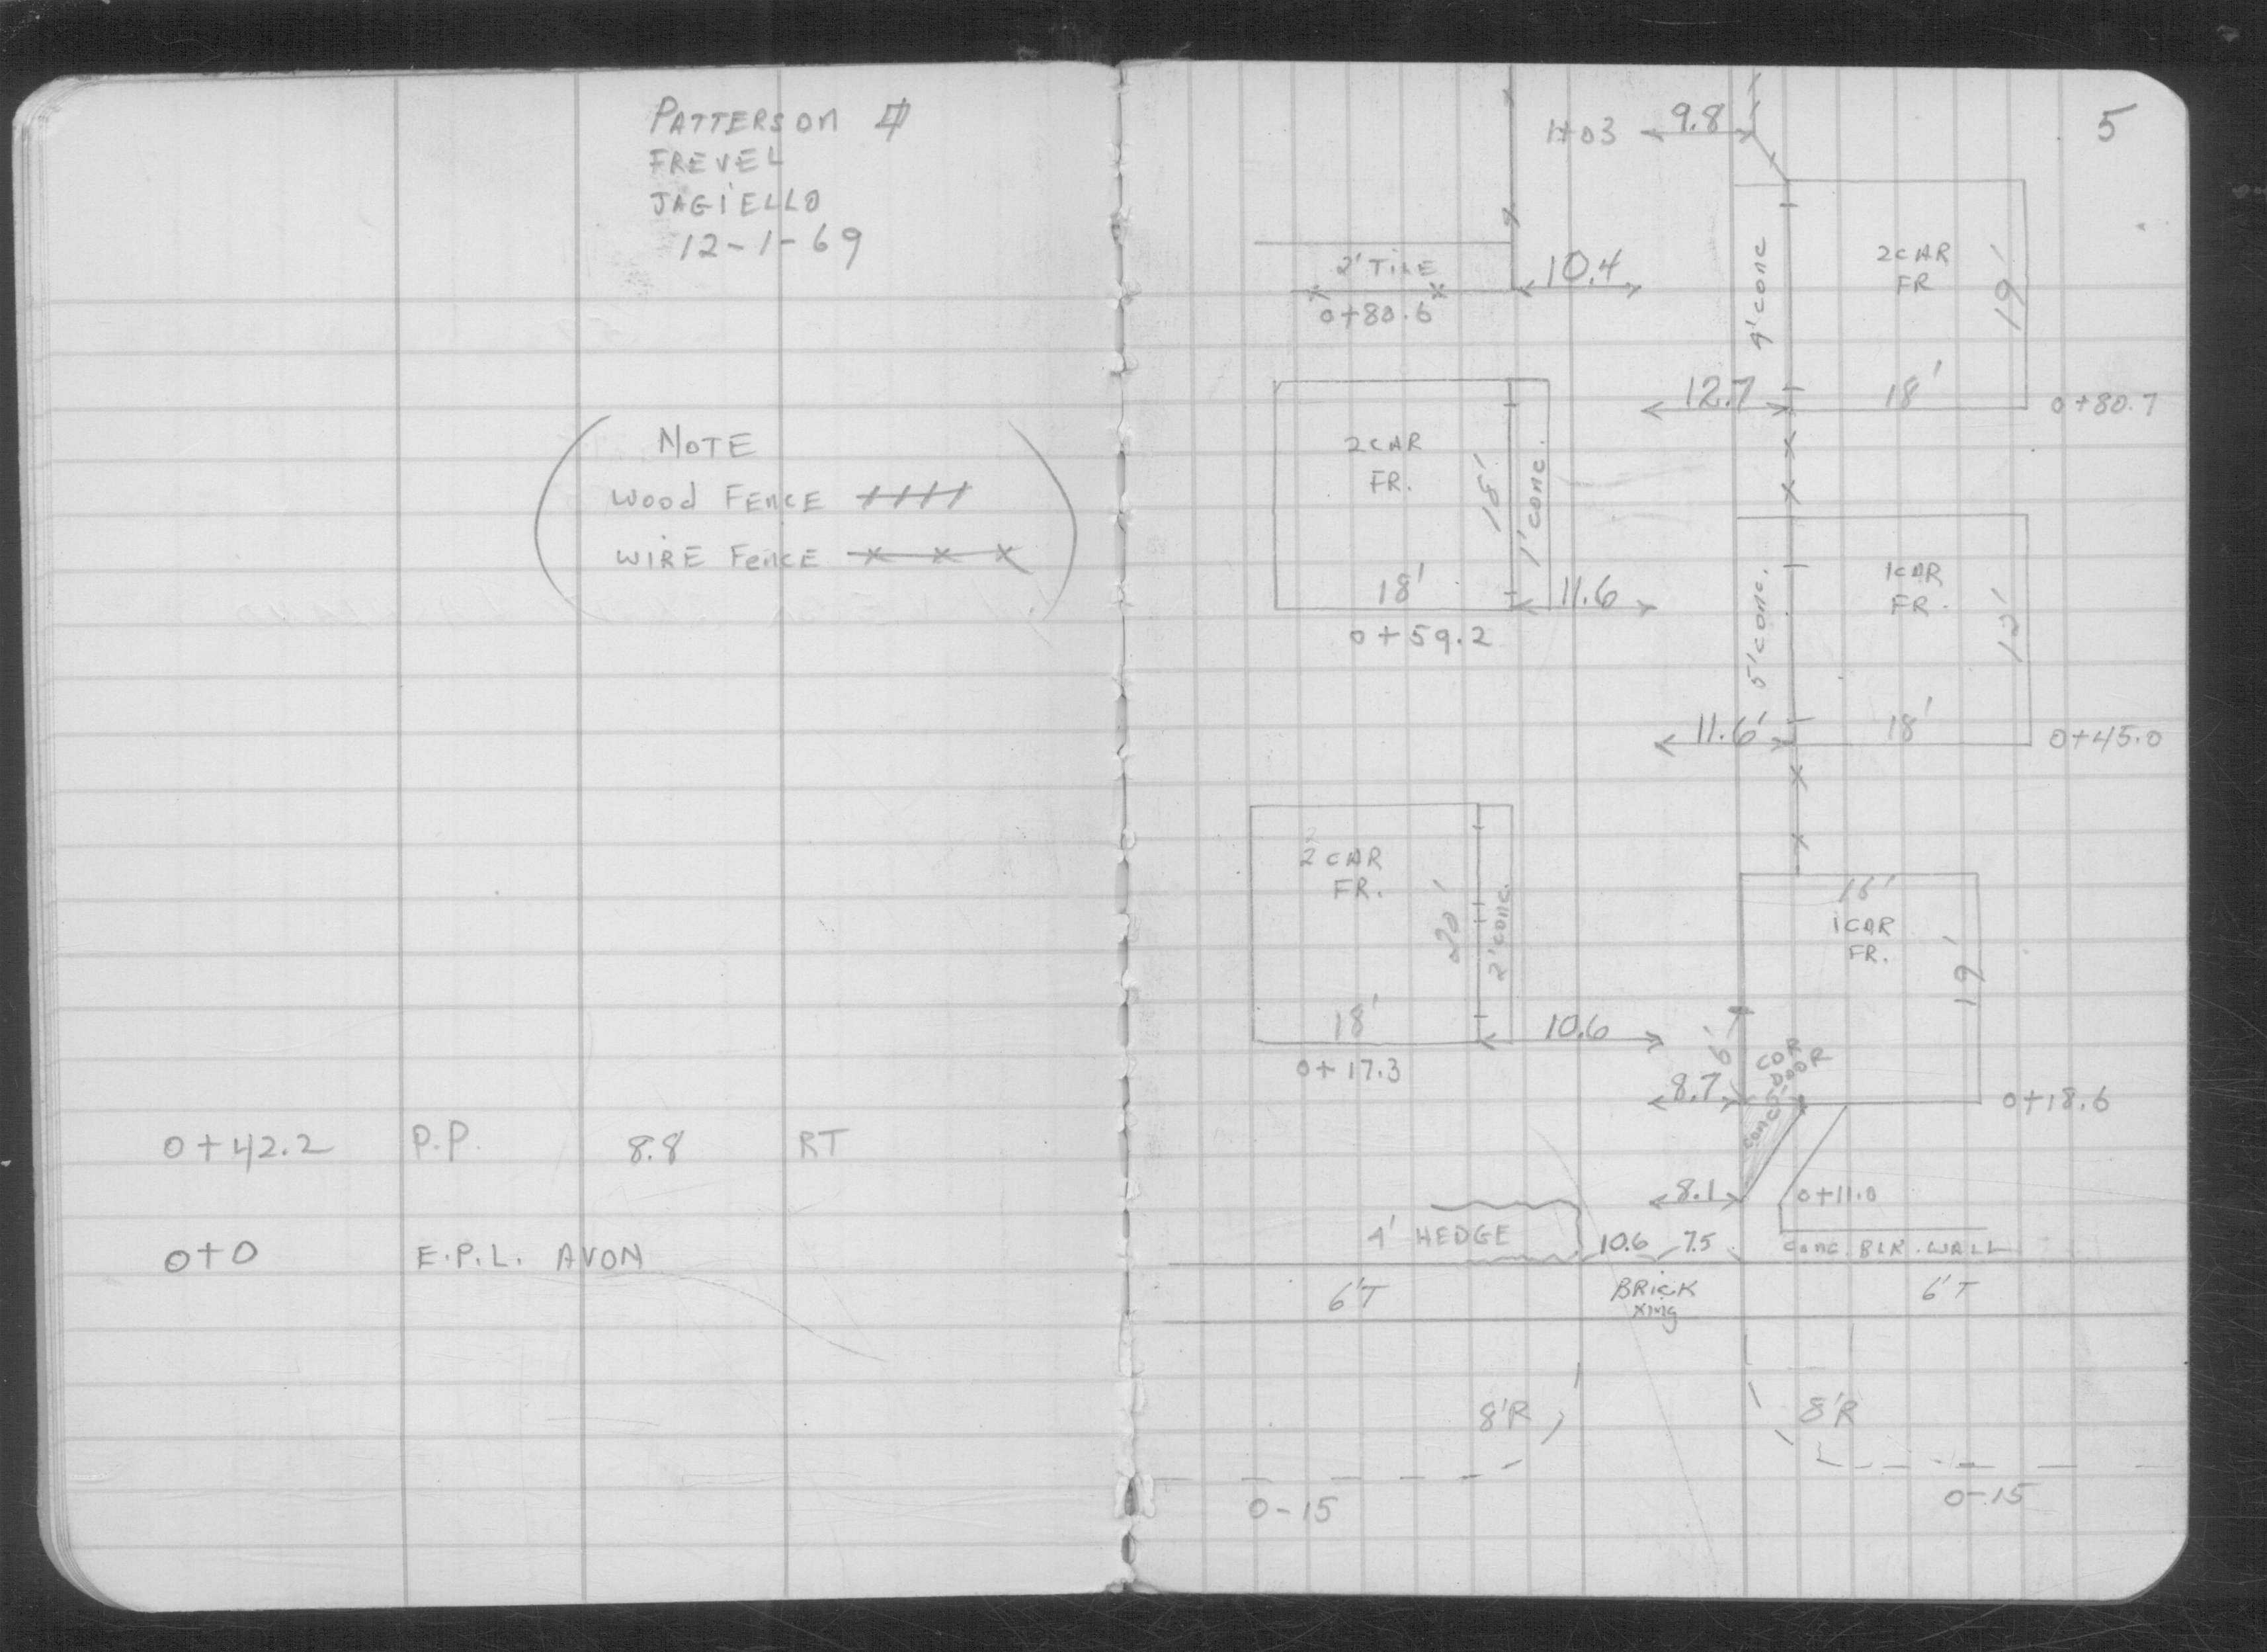 PATTERSON
FREVEL
JAGIELLO
12-1-69
NOTE
WOOD FENCE
WIRE FENCE
0+42.2 P.P. 8.8 RT
0+0 E.P.L. AVON
5
1+03 9.8
2' TILE 10.4
0+80.6
9' CONC
2 CAR
FR
19'
12.7 18' 0+80.7
2 CAR
FR.
18'
1' CONC.
18' 11.6
0+59.2
5' CONC.
1 CAR
FR.
12'
11.6' 18' 0+45.0
2 CAR
FR.
20'
2' CONC.
18' 10.6
0+17.3
16'
1 CAR
FR.
19'
6'
8.7 0+18.6
CONC
COR
DOOR
8.1 0+11.0
4' HEDGE 10.6 7.5 CONC. BLK. WALL
6'T BRICK 6'T
XING
8'R 8'R
0-15 0-15